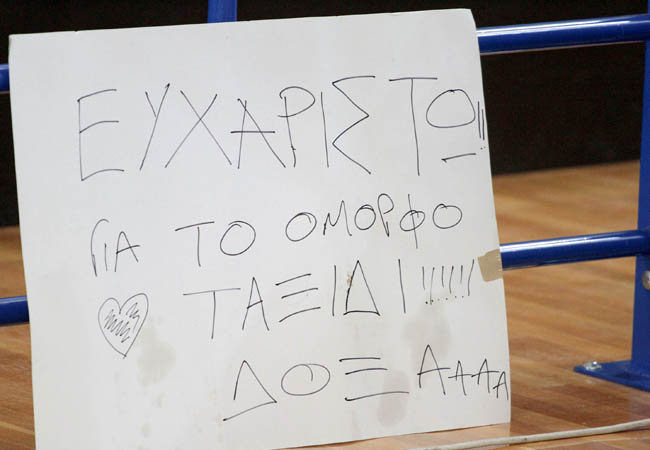 ΕΥΧΑΡΙΣΤΩ!!
ΓΙΑ ΤΟ ΟΜΟΡΦΟ
ΤΑΞΙΔΙ!!!!!!
ΔΟΞΑΑΑΑ